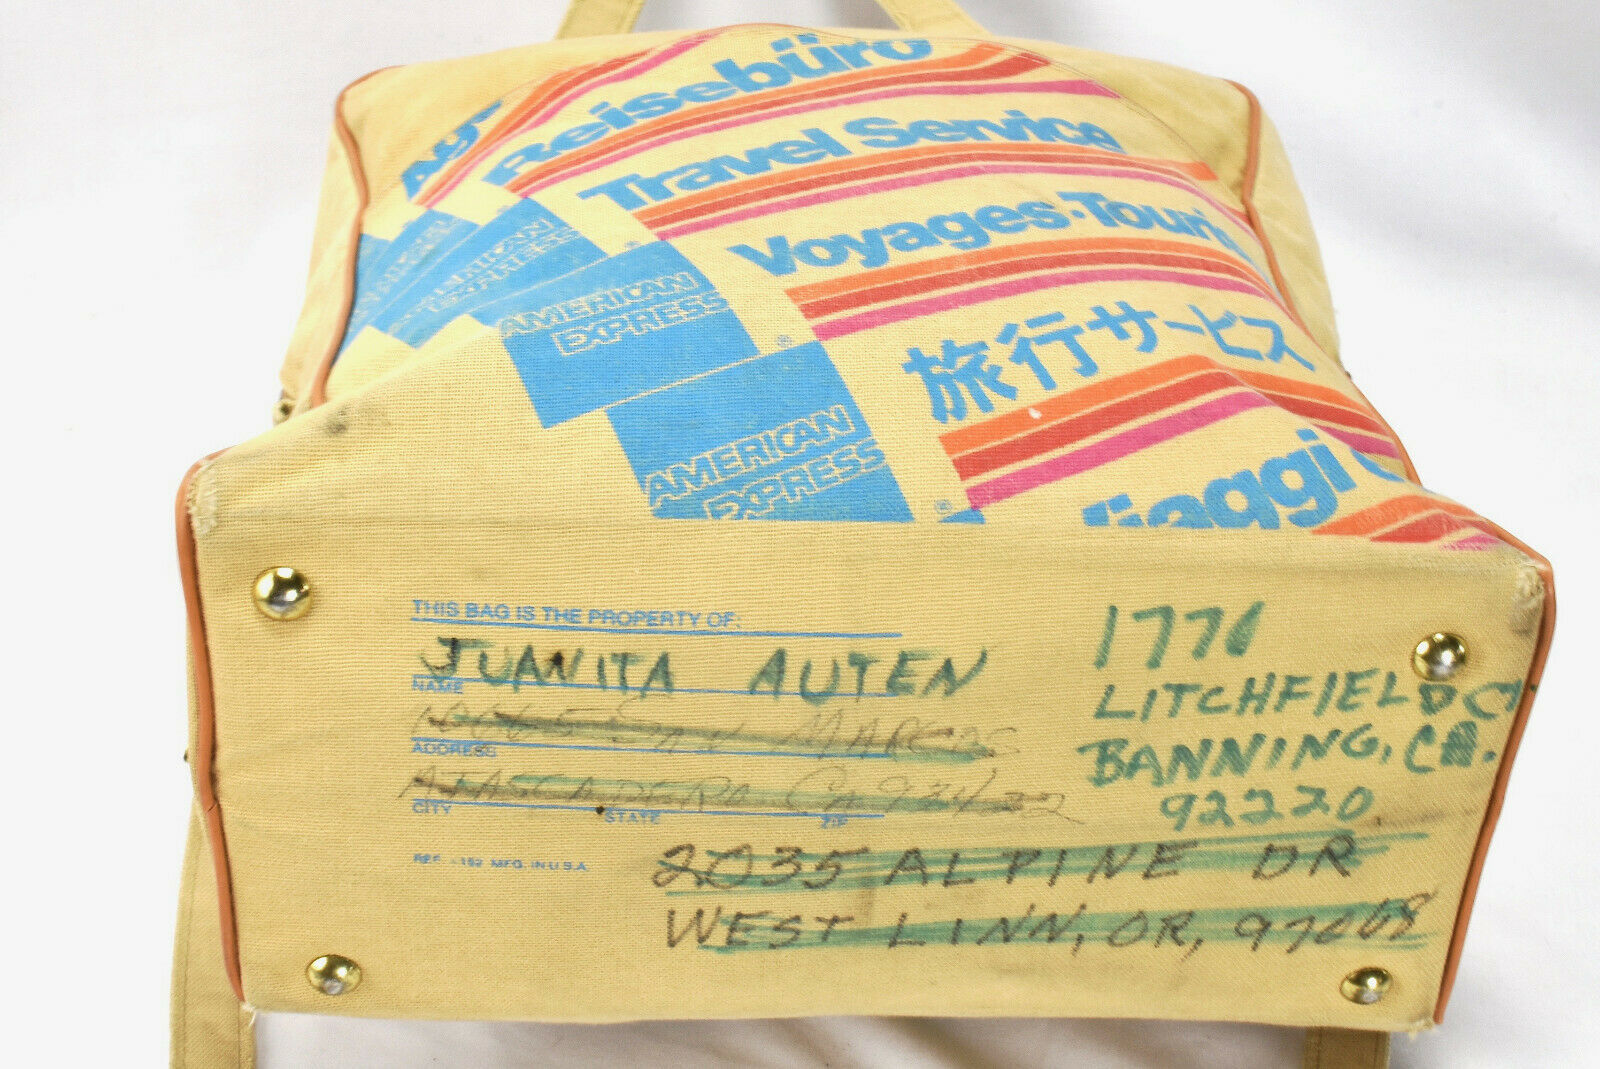 Reisebüro
Travel Service
Voyages·Touri
旅行サービス
iaggi
AMERICAN
EXPRESS
AMERICAN
EXPRESS
AMERICAN
EXPRESS
THIS BAG IS THE PROPERTY OF:
JUANITA AUTEN
NAME
SAN MARCOS
ADDRESS
ATASCADERO CA
CITY STATE ZIP
MFG. IN U.S.A.
1771
LITCHFIELD CT
BANNING, CA.
92220
2035 ALPINE DR
WEST LINN, OR, 97068